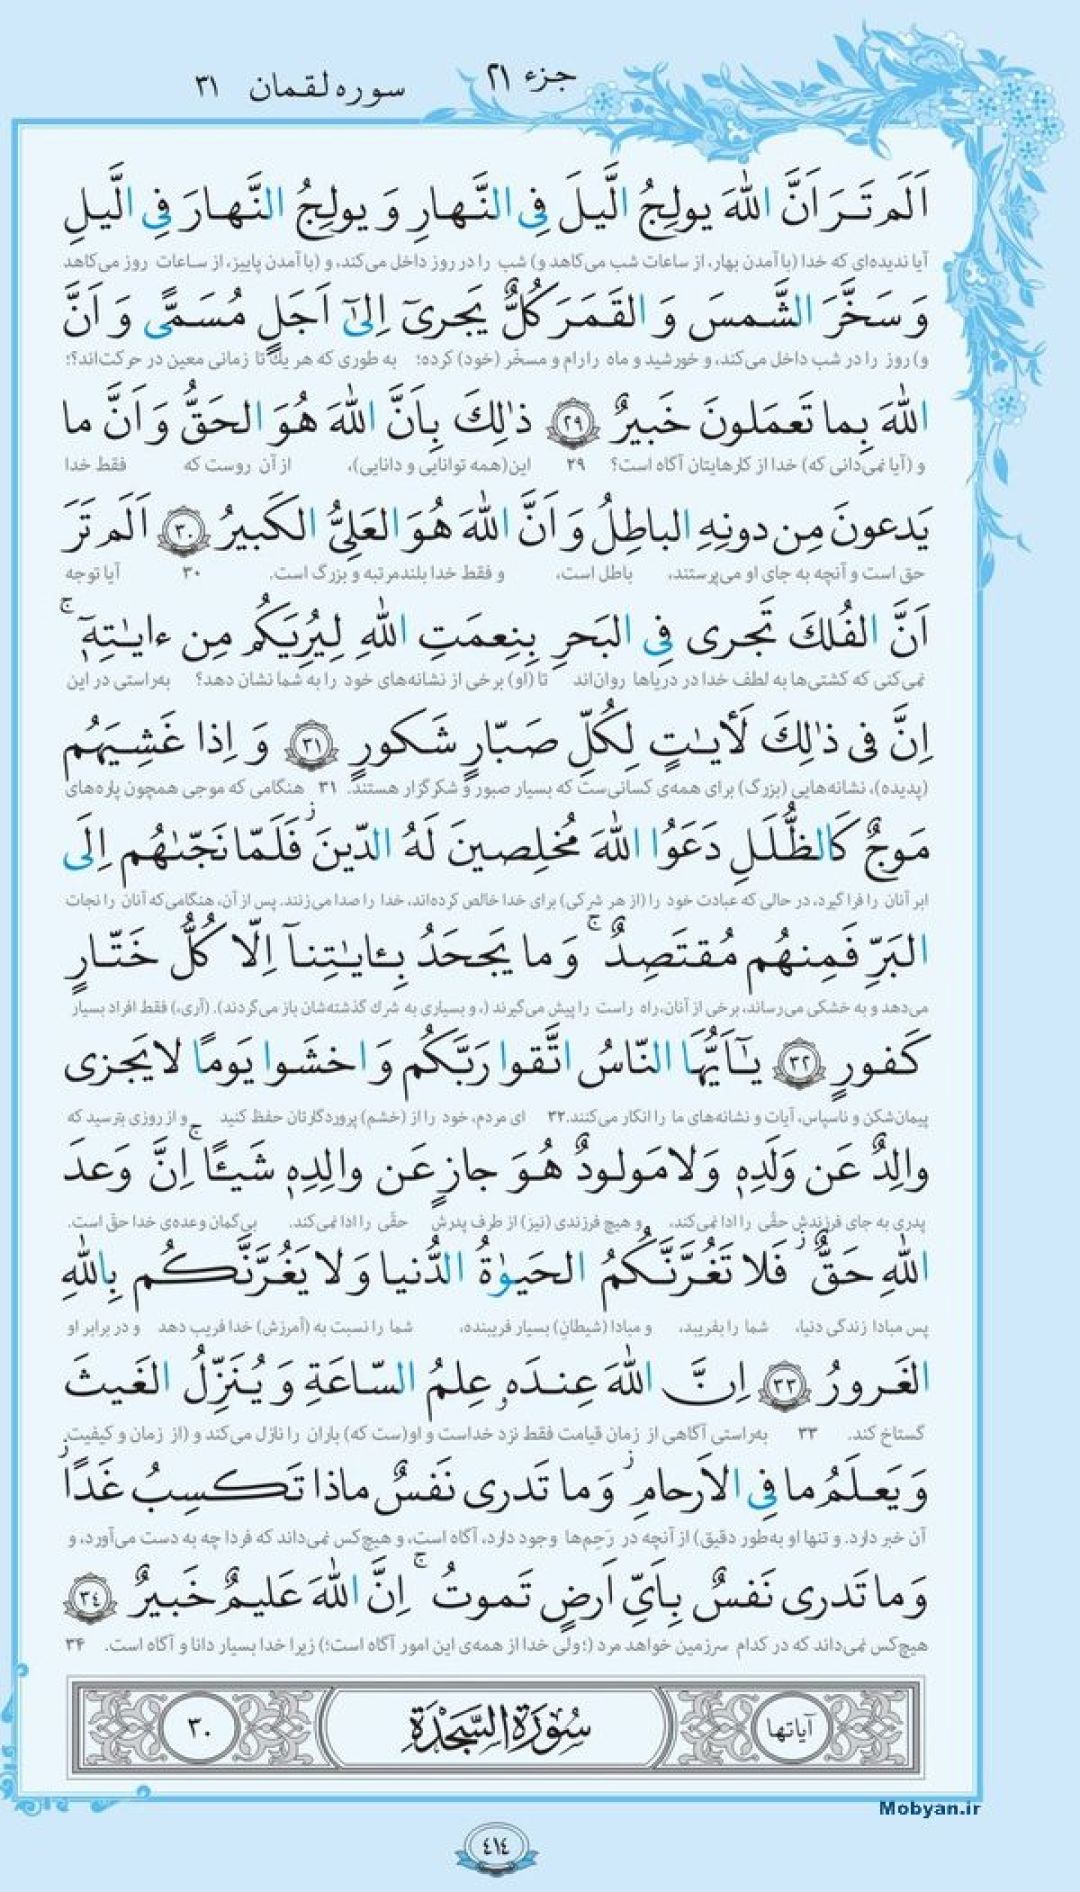 جزء ۲۱
سوره لقمان ۳۱
اَلَم تَرَ اَنَّ اللّٰهَ یولِجُ الَّیلَ فِی النَّهارِ وَ یولِجُ النَّهارَ فِی الَّیلِ
آیا ندیده‌ای که خدا (با آمدن بهار، از ساعات شب می‌کاهد و) شب را در روز داخل می‌کند، و (با آمدن پاییز، از ساعات روز می‌کاهد
وَ سَخَّرَ الشَّمسَ وَ القَمَرَ کُلٌّ یَجریٓ اِلیٰٓ اَجَلٍ مُسَمًّی وَ اَنَّ
و) روز را در شب داخل می‌کند، و خورشید و ماه را رام و مسخّر (خود) کرده؛ به طوری که هر یک تا زمانی معین در حرکت‌اند؟!
اللّٰهَ بِما تَعمَلونَ خَبیرٌ ﴿۲۹﴾ ذٰلِکَ بِاَنَّ اللّٰهَ هُوَ الحَقُّ وَ اَنَّ ما
و (آیا نمی‌دانی که) خدا از کارهایتان آگاه است؟ ۲۹ این(همه توانایی و دانایی)، از آن روست که فقط خدا
یَدعونَ مِن دونِهِ الباطِلُ وَ اَنَّ اللّٰهَ هُوَ العَلِیُّ الکَبیرُ ﴿۳۰﴾ اَلَم تَرَ
حق است و آنچه به جای او می‌پرستند، باطل است، و فقط خدا بلندمرتبه و بزرگ است. ۳۰ آیا توجه
اَنَّ الفُلکَ تَجری فِی البَحرِ بِنِعمَتِ اللّٰهِ لِیُرِیَکُم مِن ءایٰتِهٖٓ ۚ
نمی‌کنی که کشتی‌ها به لطف خدا در دریاها روان‌اند تا (او) برخی از نشانه‌های خود را به شما نشان دهد؟ به‌راستی در این
اِنَّ فی ذٰلِکَ لَأیٰتٍ لِکُلِّ صَبّارٍ شَکورٍ ﴿۳۱﴾ وَ اِذا غَشِیَهُم
(پدیده)، نشانه‌هایی (بزرگ) برای همه‌ی کسانی‌ست که بسیار صبور و شکرگزار هستند. ۳۱ هنگامی که موجی همچون پاره‌های
مَوجٌ کَالظُّلَلِ دَعَوُا اللّٰهَ مُخلِصینَ لَهُ الدّینَ ۖ فَلَمّا نَجّىٰهُم اِلَی
ابر آنان را فرا گیرد، در حالی که عبادت خود را (از هر شرکی) برای خدا خالص کرده‌اند، خدا را صدا می‌زنند. پس از آن، هنگامی‌که آنان را نجات
البَرِّ فَمِنهُم مُقتَصِدٌ ۚ وَ ما یَجحَدُ بِـٔایٰتِنآ اِلّا کُلُّ خَتّارٍ
می‌دهد و به خشکی می‌رساند، برخی از آنان، راه راست را پیش می‌گیرند (، و بسیاری به شرک گذشته‌شان باز می‌گردند). (آری،) فقط افراد بسیار
کَفورٍ ﴿۳۲﴾ یـٰٓاَیُّهَا النّاسُ اتَّقوا رَبَّکُم وَ اخشَوا یَومًا لا یَجزی
پیمان‌شکن و ناسپاس، آیات و نشانه‌های ما را انکار می‌کنند.۳۲ ای مردم، خود را از (خشم) پروردگارتان حفظ کنید و از روزی بترسید که
والِدٌ عَن وَلَدِهٖ وَلا مَولودٌ هُوَ جازٍ عَن والِدِهٖ شَیـًٔا ۚ اِنَّ وَعدَ
پدری به جای فرزندش حقّی را ادا نمی‌کند، و هیچ فرزندی (نیز) از طرف پدرش حقّی را ادا نمی‌کند. بی‌گمان وعده‌ی خدا حق است.
اللّٰهِ حَقٌّ ۖ فَلا تَغُرَّنَّکُمُ الحَیوٰةُ الدُّنیا وَ لا یَغُرَّنَّکُم بِاللّٰهِ
پس مبادا زندگی دنیا، شما را بفریبد، و مبادا (شیطانِ) بسیار فریبنده، شما را نسبت به (آمرزش) خدا فریب دهد و در برابر او
الغَرورُ ﴿۳۳﴾ اِنَّ اللّٰهَ عِندَهٗ عِلمُ السّاعَةِ وَ یُنَزِّلُ الغَیثَ
گستاخ کند. ۳۳ به‌راستی آگاهی از زمان قیامت فقط نزد خداست و او(ست که) باران را نازل می‌کند و (از زمان و کیفیت
وَ یَعلَمُ ما فِی الاَرحامِ ۖ وَ ما تَدری نَفسٌ ماذا تَکسِبُ غَدًا ۖ
آن خبر دارد. و تنها او به‌طور دقیق) از آنچه در رَحِم‌ها وجود دارد، آگاه است، و هیچ‌کس نمی‌داند که فردا چه به دست می‌آورد، و
وَ ما تَدری نَفسٌ بِاَیِّ اَرضٍ تَموتُ ۚ اِنَّ اللّٰهَ عَلیمٌ خَبیرٌ ﴿۳۴﴾
هیچ‌کس نمی‌داند که در کدام سرزمین خواهد مرد (؛ ولی خدا از همه‌ی این امور آگاه است؛) زیرا خدا بسیار دانا و آگاه است. ۳۴
آیاتها سُورَةُ السَّجدَةِ ۳۰
Mobyan.ir
٤١٤